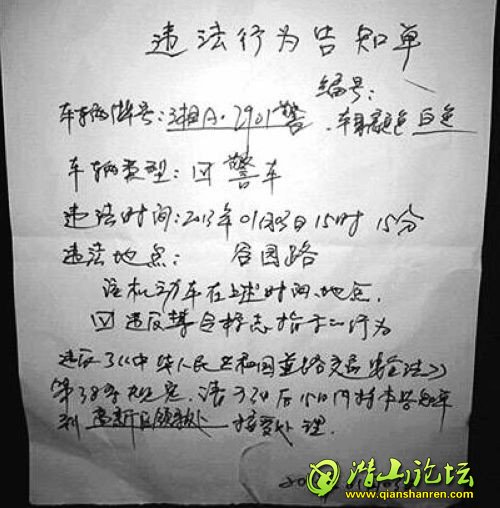 违法行为告知单
编号：
车辆牌号：湘A·2901警，车身颜色 白色
车辆类型：☑ 警车
违法时间：2013年01月03日15时15分
违法地点： 谷园路
该机动车在上述时间、地点，
☑ 违反禁令标志指示的行为
违反了《中华人民共和国道路交通安全法》
第38条规定，请于24后15日内持本告知单
到 高新区 接受处理。
潜山论坛
www.qianshanren.com